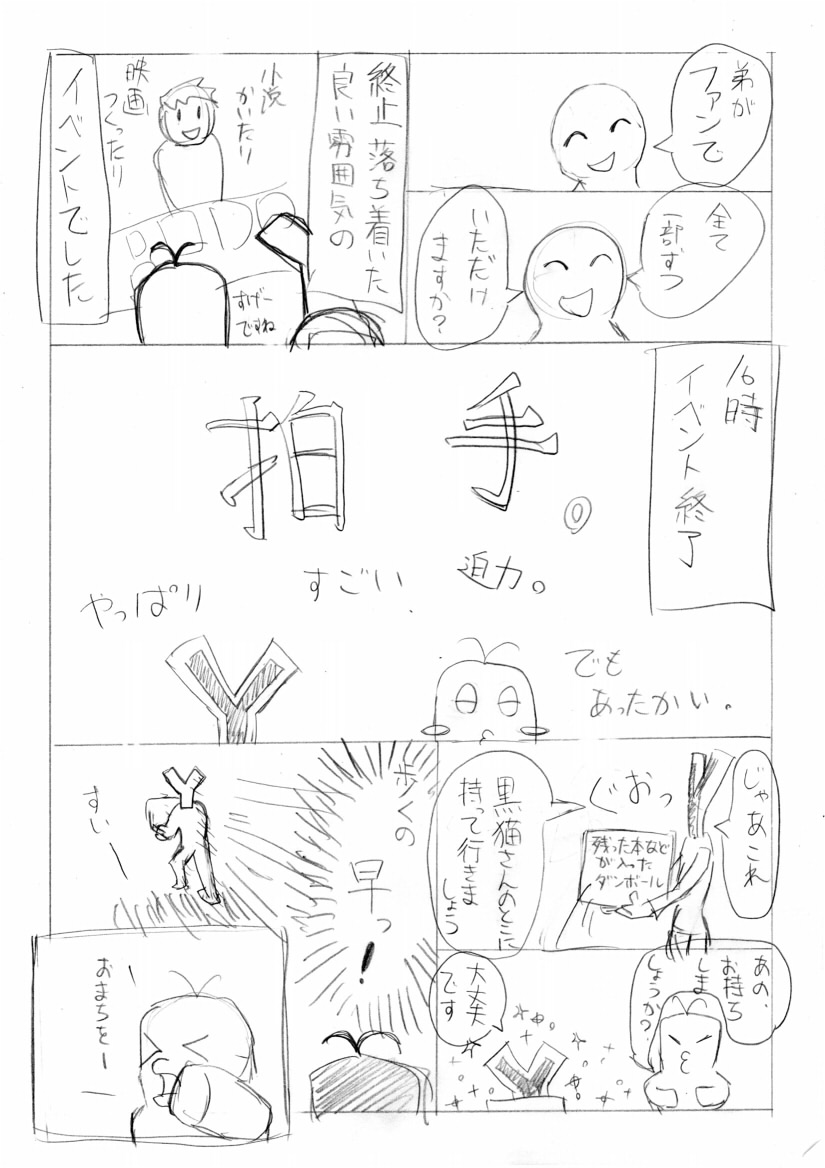 弟が
ファンで
全て
一部ずつ
いただけ
ますか?
終止落ち着いた
良い雰囲気の
小説
かいたり
映画
つくったり
すげー
ですね
イベントでした
16時
イベント終了
拍手。
すごい
迫力。
やっぱり
でも
あったかい。
じゃあこれ
ぐおっ
残った本など
が入った
ダンボール
黒猫さんのとこに
持って行きま
しょう
あの、
お持ち
しま
しょうか?
大丈夫
です
歩くの
早っ!
すいー
おまちをー